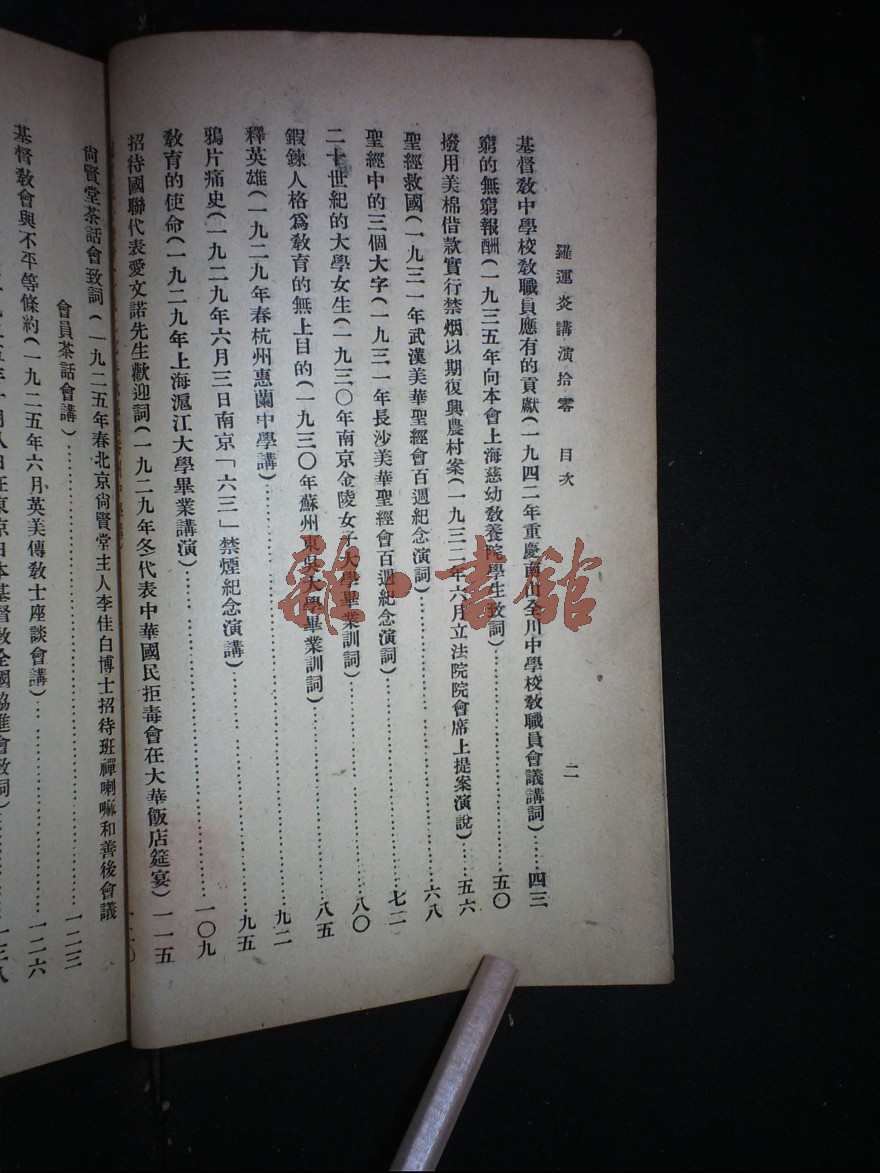 羅運炎講演拾零 目次 二
基督敎中學校敎職員應有的貢獻(一九四二年重慶南川全川中學校敎職員會議講詞)……四三
窮的無窮報酬(一九三五年向本會上海慈幼敎養院學生致詞)……五〇
撥用美棉借款實行禁烟以期復興農村案(一九三二年六月立法院院會席上提案演說)……五六
聖經救國(一九三一年武漢美華聖經會百週紀念演詞)……六八
聖經中的三個大字(一九三一年長沙美華聖經會百週紀念演詞)……七二
二十世紀的大學女生(一九三〇年南京金陵女子大學畢業訓詞)……八〇
鍜鍊人格爲敎育的無上目的(一九三〇年蘇州東吳大學畢業訓詞)……八五
釋英雄(一九二九年春杭州惠蘭中學講)……九二
鴉片痛史(一九二九年六月三日南京「六三」禁煙紀念演講)……九五
敎育的使命(一九二九年上海滬江大學畢業講演)……一〇九
招待國聯代表愛文諾先生歡迎詞(一九二九年冬代表中華國民拒毒會在大華飯店筵宴)一一五
尙賢堂茶話會致詞(一九二五年春北京尙賢堂主人李佳白博士招待班禪喇嘛和善後會議
會員茶話會講)……一二三
基督敎會與不平等條約(一九二五年六月英美傳敎士座談會講)……一二六
月八日在東京日本基督敎全國協進會致詞)……一三八
雜·書館